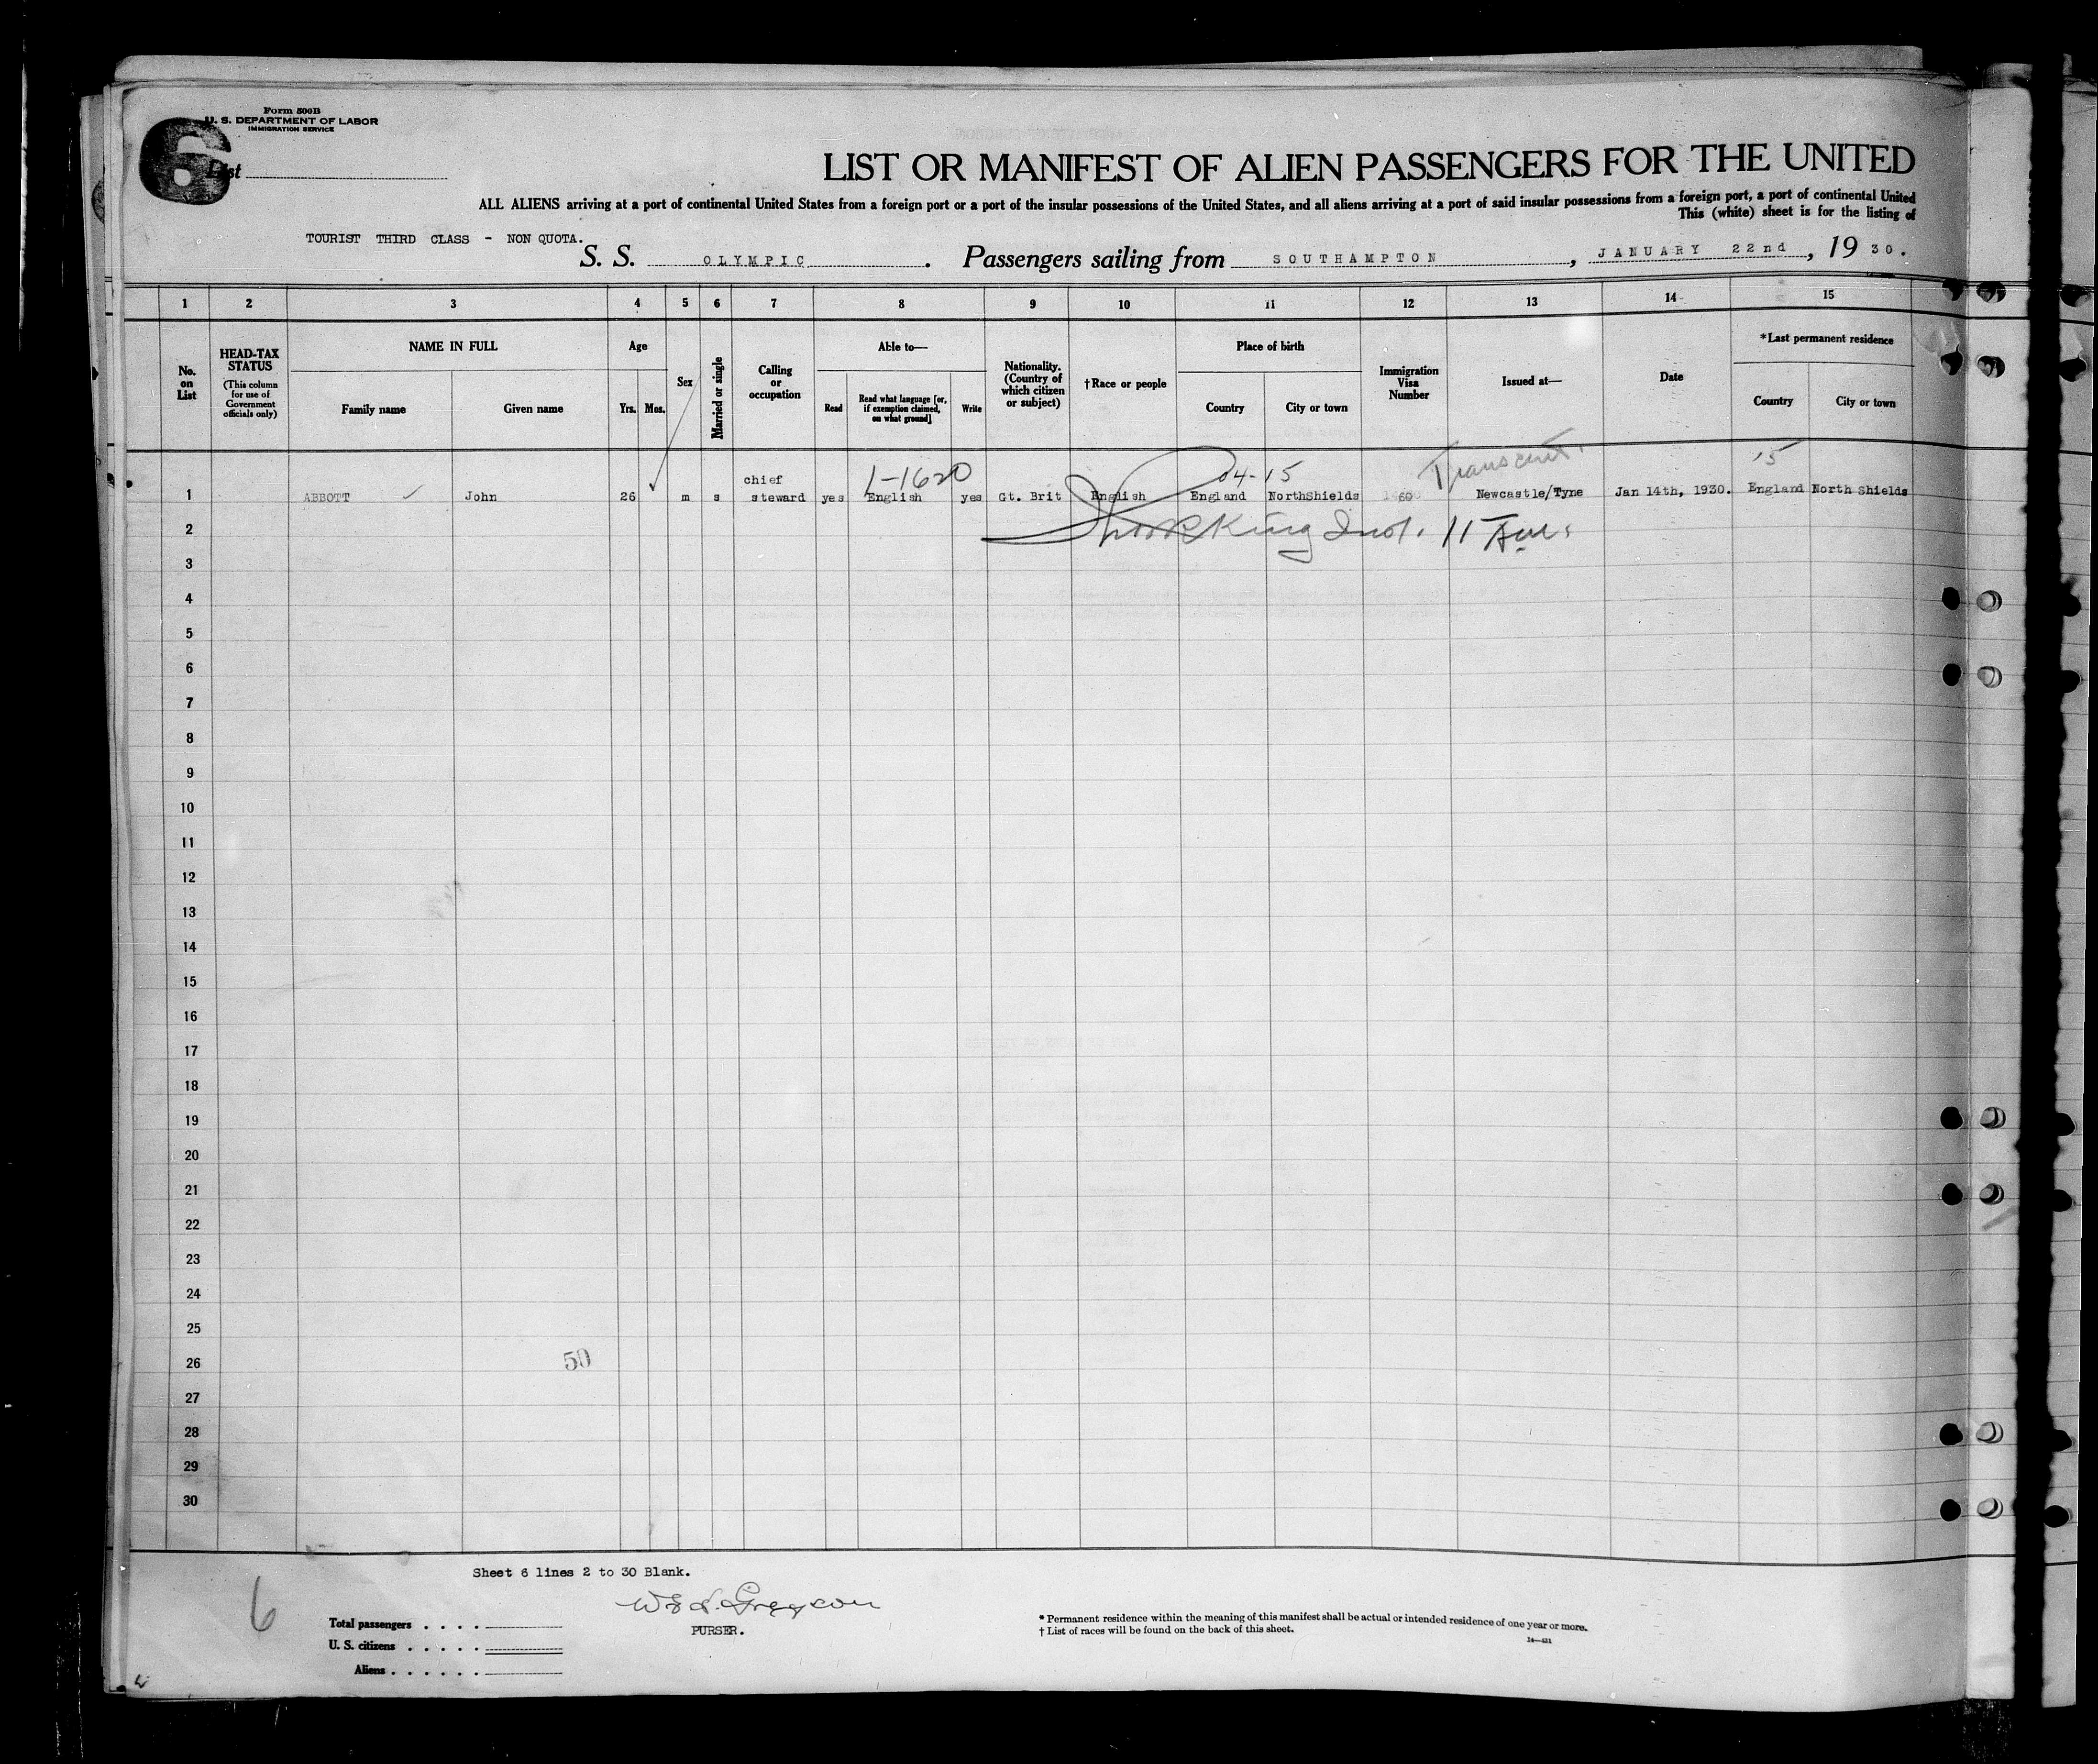 Form 500B
U. S. DEPARTMENT OF LABOR
IMMIGRATION SERVICE
6
List
LIST OR MANIFEST OF ALIEN PASSENGERS FOR THE UNITED
ALL ALIENS arriving at a port of continental United States from a foreign port or a port of the insular possessions of the United States, and all aliens arriving at a port of said insular possessions from a foreign port, a port of continental United
This (white) sheet is for the listing of
TOURIST THIRD CLASS - NON QUOTA.
S. S. OLYMPIC. Passengers sailing from SOUTHAMPTON, JANUARY 22nd, 1930.
1 2 3 4 5 6 7 8 9 10 11 12 13 14 15
No. on List
HEAD-TAX STATUS (This column for use of Government officials only)
NAME IN FULL
Family name Given name
Age
Yrs. Mos.
Sex
Married or single
Calling or occupation
Able to—
Read Read what language [or, if exemption claimed, on what ground] Write
Nationality. (Country of which citizen or subject)
†Race or people
Place of birth
Country City or town
Immigration Visa Number
Issued at—
Date
*Last permanent residence
Country City or town
1-1620 04-15 15
1 ABBOTT John 26 m s chief steward yes English yes Gt. Brit English England NorthShields 60 Newcastle/Tyne Jan 14th, 1930. England North Shields
2
3
4
5
6
7
8
9
10
11
12
13
14
15
16
17
18
19
20
21
22
23
24
25
26 50
27
28
29
30
Sheet 6 lines 2 to 30 Blank.
6
PURSER.
Total passengers . . . .
U. S. citizens . . . . .
Aliens . . . . . .
* Permanent residence within the meaning of this manifest shall be actual or intended residence of one year or more.
† List of races will be found on the back of this sheet.